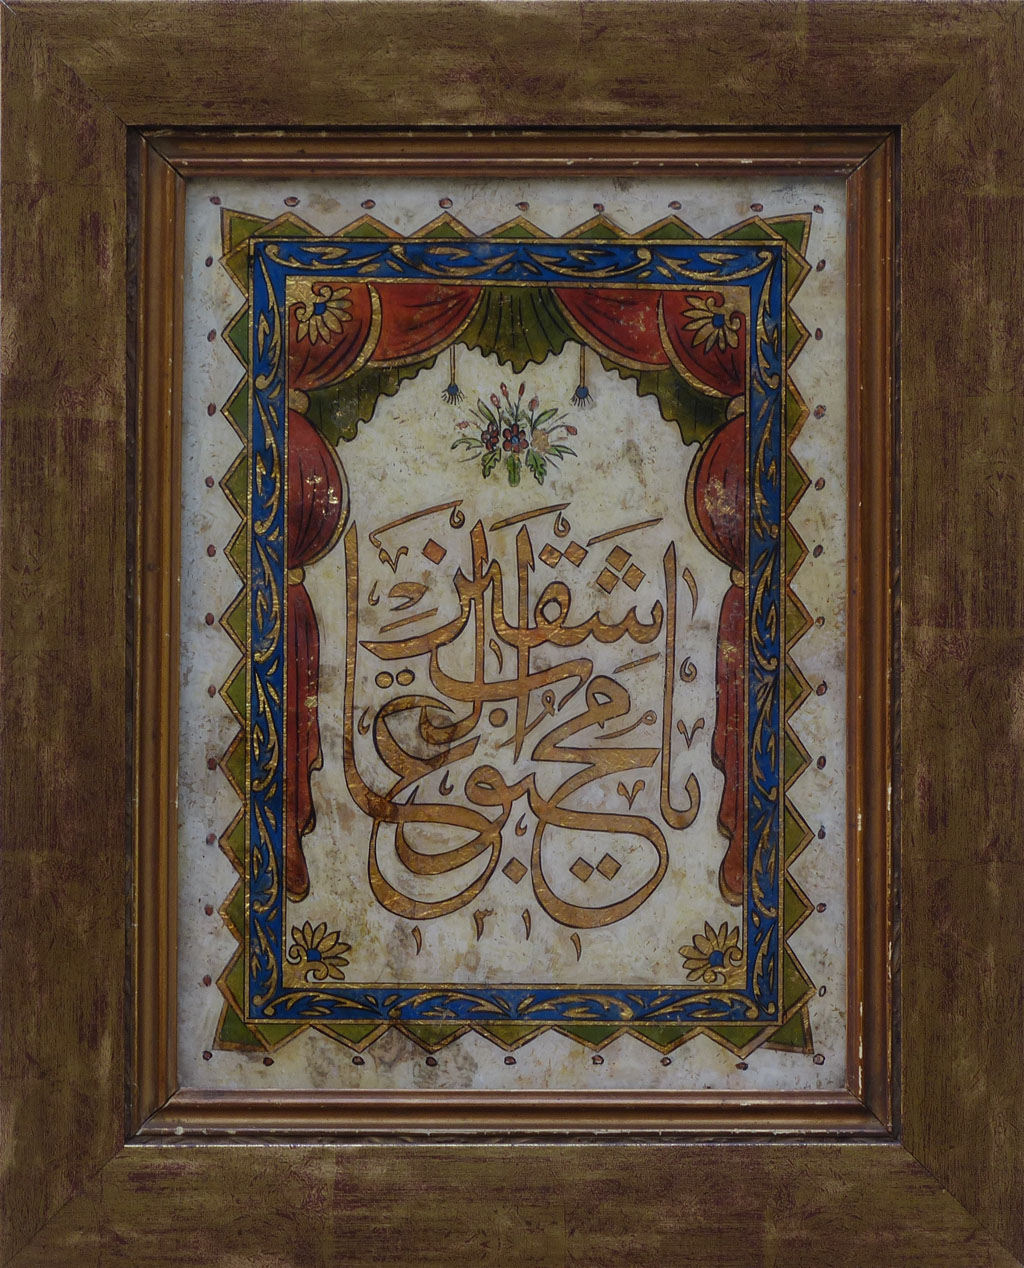 يا محبوب العاشقين
١٣١١